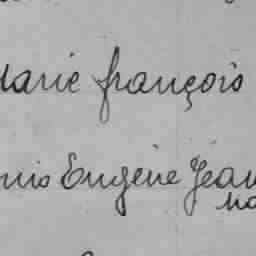 Marie françois
Eugène Jean